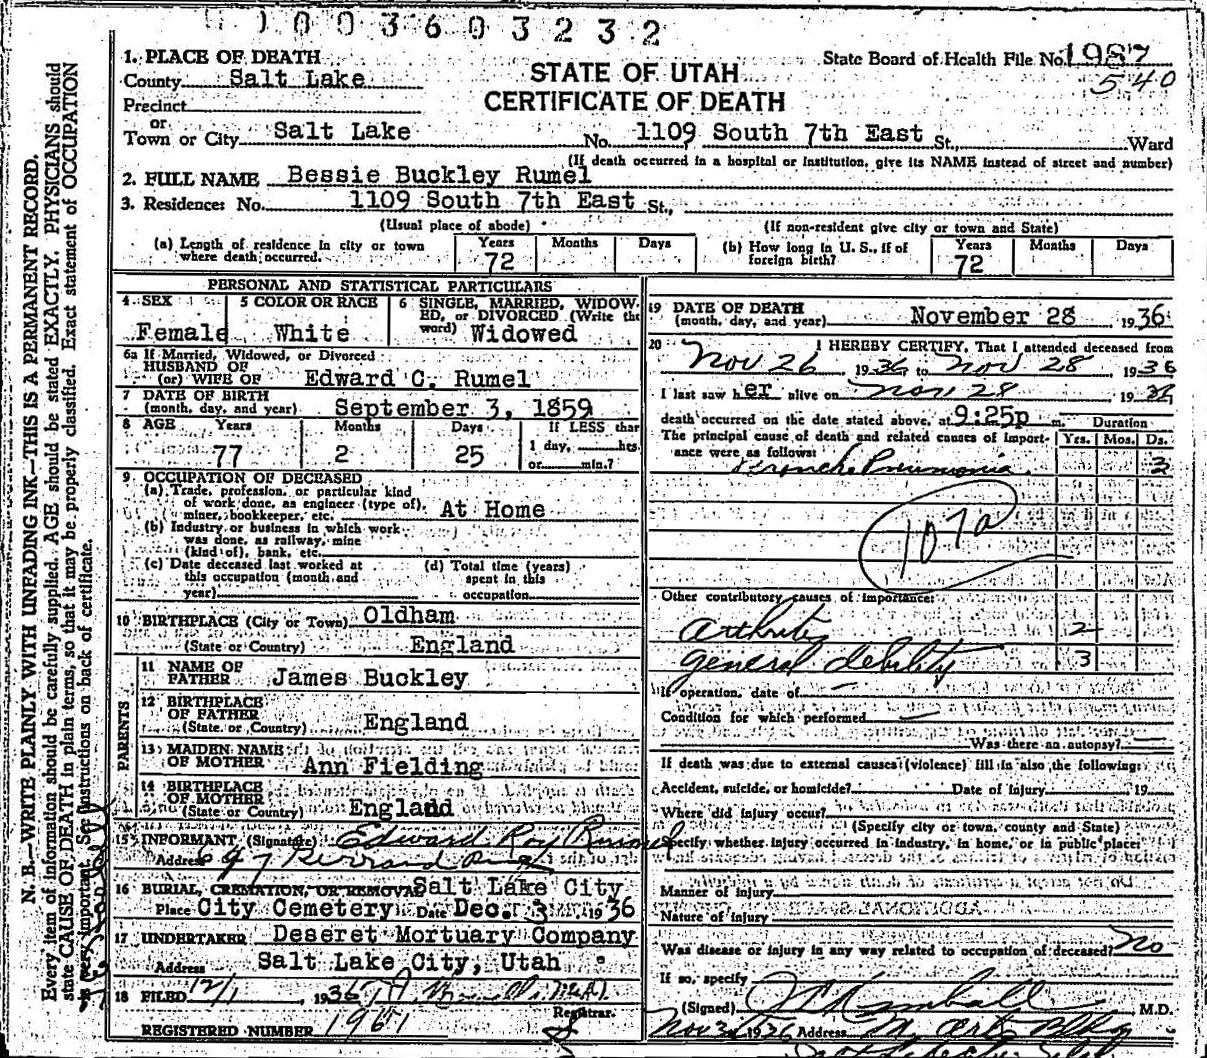 1003603232
1. PLACE OF DEATH
County Salt Lake
Precinct
or
Town or City Salt Lake No. 1109 South 7th East St., Ward
STATE OF UTAH
CERTIFICATE OF DEATH
State Board of Health File No. 1987
540
(If death occurred in a hospital or institution, give its NAME instead of street and number)
2. FULL NAME Bessie Buckley Rumel
3. Residence: No. 1109 South 7th East St.,
(Usual place of abode) (If non-resident give city or town and State)
(a) Length of residence in city or town where death occurred. Years 72 Months Days
(b) How long in U. S., if of foreign birth? Years 72 Months Days
PERSONAL AND STATISTICAL PARTICULARS
4 SEX Female
5 COLOR OR RACE White
6 SINGLE, MARRIED, WIDOWED, or DIVORCED (Write the word) Widowed
6a If Married, Widowed, or Divorced
HUSBAND OF
(or) WIFE OF Edward C. Rumel
7 DATE OF BIRTH
(month, day, and year) September 3, 1859
8 AGE Years 77 Months 2 Days 25 If LESS than 1 day, hrs. or min.?
9 OCCUPATION OF DECEASED
(a) Trade, profession, or particular kind
of work done, as engineer (type of),
miner, bookkeeper, etc. At Home
(b) Industry or business in which work
was done, as railway, mine
(kind of), bank, etc.
(c) Date deceased last worked at
this occupation (month and
year)
(d) Total time (years)
spent in this
occupation
10 BIRTHPLACE (City or Town) Oldham
(State or Country) England
PARENTS
11 NAME OF
FATHER James Buckley
12 BIRTHPLACE
OF FATHER
(State or Country) England
13 MAIDEN NAME
OF MOTHER Ann Fielding
14 BIRTHPLACE
OF MOTHER
(State or Country) England
15 INFORMANT (Signature) Edward Roy Rumel
Address
16 BURIAL, CREMATION, OR REMOVAL Salt Lake City
Place City Cemetery Date Dec. 3 1936
17 UNDERTAKER Deseret Mortuary Company
Address Salt Lake City, Utah
18 FILED 12/1, 1936
Registrar.
REGISTERED NUMBER 1961
19 DATE OF DEATH
(month, day, and year) November 28 1936
20 I HEREBY CERTIFY, That I attended deceased from
Nov 26, 1936 to Nov 28, 1936
I last saw her alive on Nov 28 1936
death occurred on the date stated above, at 9:25p m.
Duration
The principal cause of death and related causes of importance were as follows: Yrs. Mos. Ds.
Broncho Pneumonia 3
107a
Other contributory causes of importance:
Arthritis 2
general debility 3
If operation, date of
Condition for which performed
Was there an autopsy?
If death was due to external causes (violence) fill in also the following:
Accident, suicide, or homicide? Date of injury 19
Where did injury occur?
(Specify city or town, county and State)
Specify whether injury occurred in industry, in home, or in public place:
Manner of injury
Nature of injury
Was disease or injury in any way related to occupation of deceased? No
If so, specify
(Signed) Kimball M.D.
1936 Address M. Arts Bldg
N. B.—WRITE PLAINLY WITH UNFADING INK—THIS IS A PERMANENT RECORD.
Every item of information should be carefully supplied. AGE should be stated EXACTLY. PHYSICIANS should
state CAUSE OF DEATH in plain terms, so that it may be properly classified. Exact statement of OCCUPATION
is very important. See instructions on back of certificate.